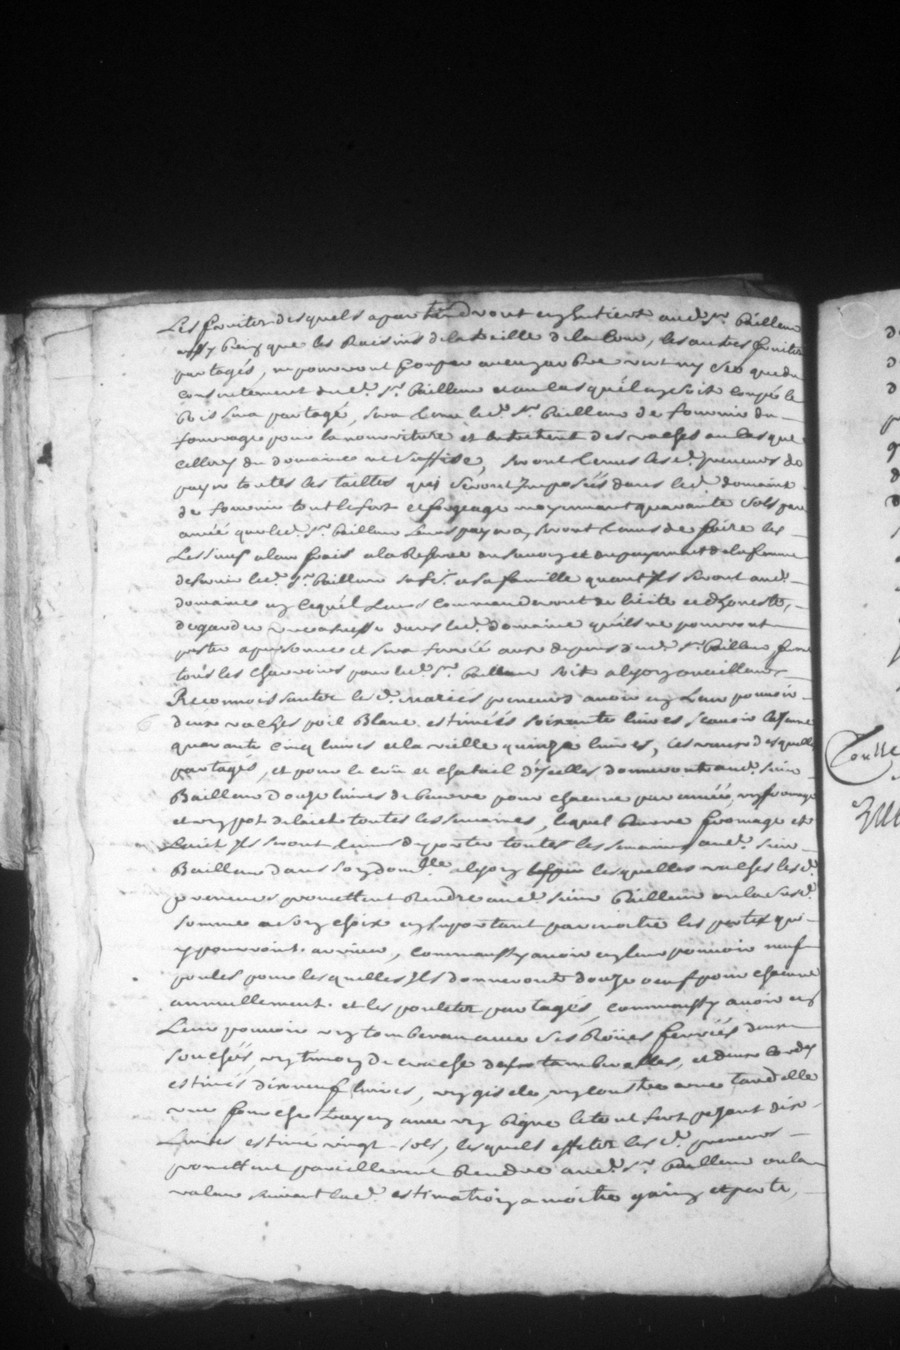 Les fruiter desquels apartiendront en entiert aud. Sr. Bailleux
aussy bien que les Raisins de la treille de la Cour, les autres fruiter
partagés, ne pourront Couper aucun arbre vert ny sec que du
consentement dud. Sr. Bailleux et au Cas qu'il en soit coupé le
Bois sera partagé, sera tenu led. Sr. Bailleux de fournir du
fourrage pour la nourriture et des vaches au Cas que
celluy du domaine ne suffise, seront tenus les d. preneurs de
payer toutes les tailles qui seront Imposés dans led. domaine
de fournir tout le fert et forgeage moyennant quarante sols par
année que led. Sr. Bailleux Leurs payera, seront tenus de faire les
Lessives a leur frais a la Reserve du savon et du payement de la femme
de servir led. Sr. Bailleux et sa famille quant Ils seront aud.
domaine en lequél Leurs Commanderont de licite et d'honeste,
de garder une dans led. domaine qu'ils ne pourront
prêter a personne et sera ferrée aux depens dud. Sr. Bailleux
tous les pour led. Sr. Bailleux soit a lyon ou ailleurs
Reconnoissants les d. mariés preneurs avoir en Leur pouvoir
deux vaches poil Blanc estimées soixante livres scavoir la Jeune
quarante cinq livres et la vielle quinze livres, les veaux desquelles
partagés, et pour le crû et chatail d'ycelles donneront aud. sieur
Bailleux Douze livres de beurre pour chacune par année, un fromage
et un pot de laict toutes les semaines, lequel Beurre fromage et
Laict Ils seront tenus de porter toutes les semaines aud. sieur
Bailleux dans son domlle. a lyon lesquelles vaches les d.
preneurs promettent Rendre aud. sieur Bailleux ou la susd.
somme a son choix en suportant par moitié les pertes qui
y pourroint arriver, comm'aussy avoir en leur pouvoir neuf
poules pour lesquelles Ils donneront douze oeuf pour chacune
annuellement. et les pouleter partagés, comm'aussy avoir en
Leur pouvoir un tombereau avec ses Rouës ferrées deux
un de tamberelles, et deux
estimés dixneuf livres, un gisele, un avec
une fourche avec un bigue le tout fert pesant dix
Livres estimé vingt sols, lesquels effetes les d. preneurs
promettent pareillement Rendre aud. Sr. Bailleux ou la
valeur suivant lad. estimation a moitié gain et perte,
Toutte